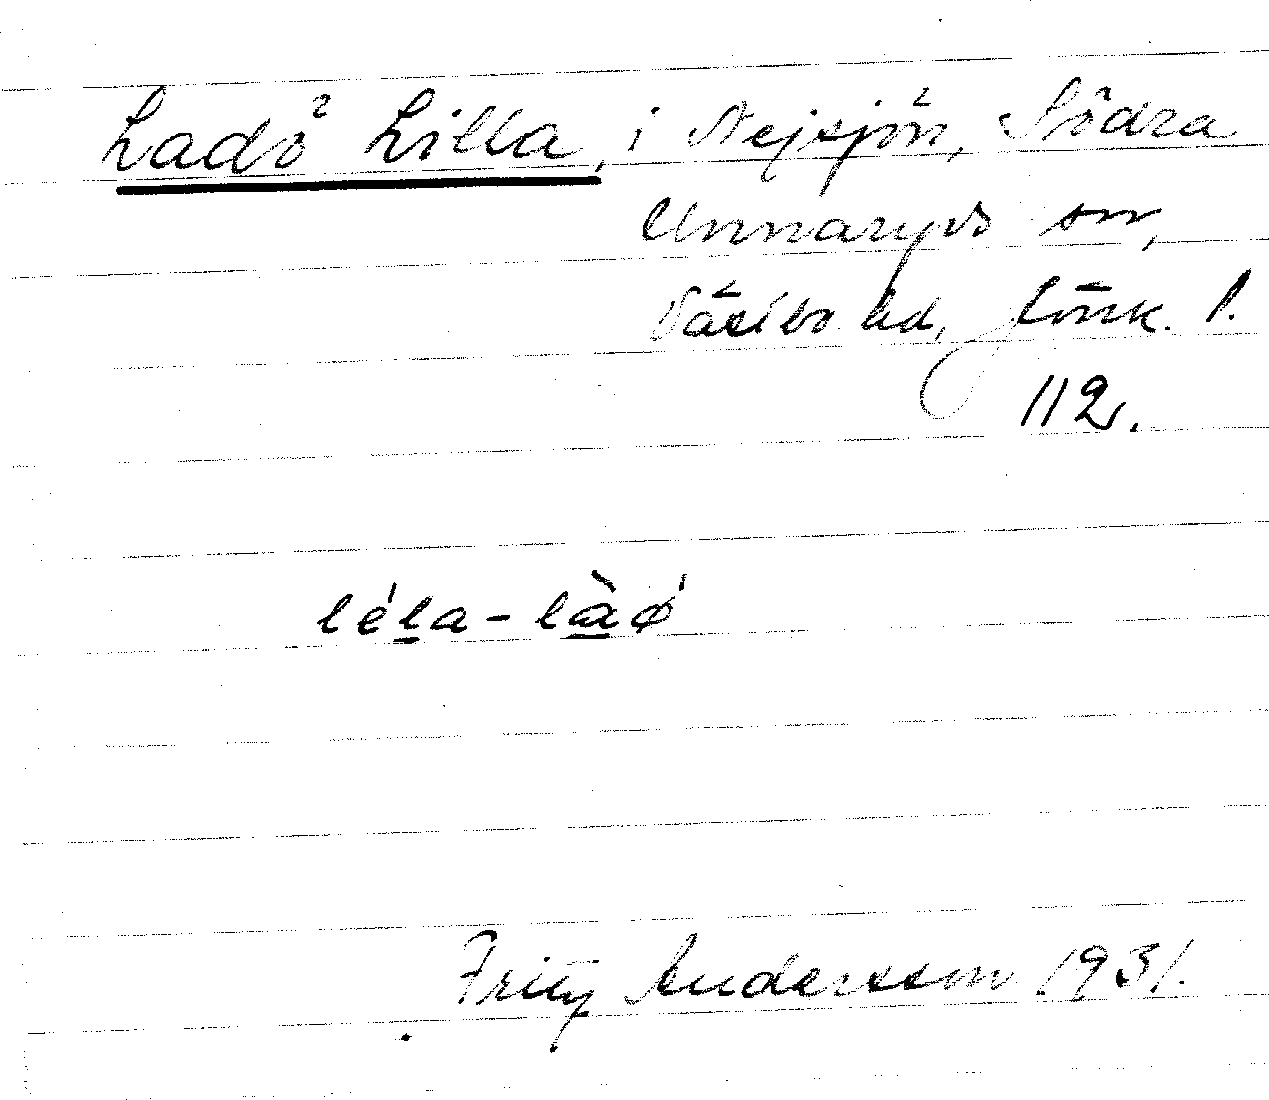 Ladö Lilla, i Nejsjön, Södra
Unnaryds sn,
Västbo hd, Jönk. l.
112.
léla - làø´
Fritz Andersson 1931.